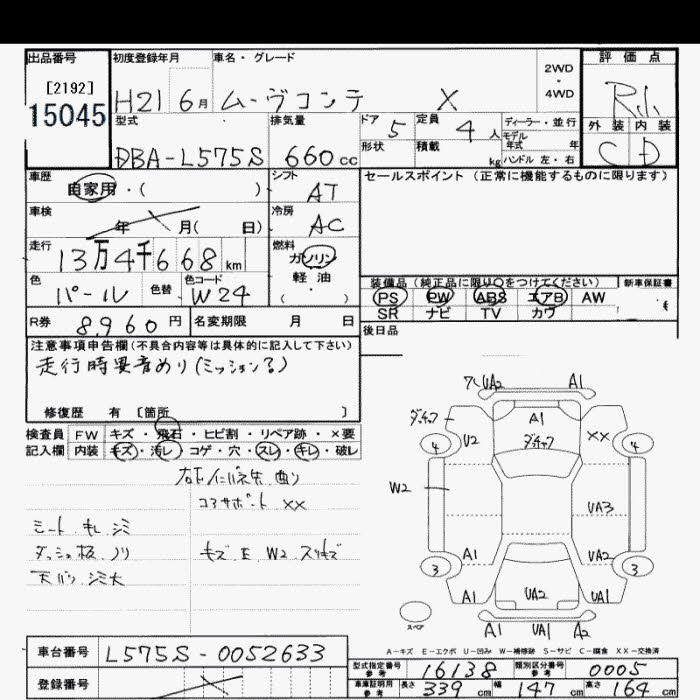 出品番号 初度登録年月 車名・グレード 2WD・4WD 評価点
[2192]
15045
H21 6月 ムーヴコンテ X
型式 排気量 ドア 5 定員 4人 ディーラー・並行
モデル年式 年
外装 内装
DBA-L575S 660cc 形状 積載 kg ハンドル 左・右
C D
車歴 自家用・( ) シフト AT セールスポイント (正常に機能するものに限ります)
車検 年 月( 日) 冷房 AC
走行 13万4千668km 燃料 ガソリン
軽油
( )
色 パール 色替 色コード W24
装備品(純正品に限り○をつけてください) 新車保証書
PS PW ABS エアB AW
SR ナビ TV カワ
R券 8,960円 名変期限 月 日
後日品
注意事項申告欄(不具合内容等は具体的に記入して下さい)
走行時異音あり(ミッション?)
修復歴 有 [箇所 ]
検査員 FW キズ・飛石・ヒビ割・リペア跡・×要
記入欄 内装 キズ・汚レ・コゲ・穴・スレ・キレ・破レ
コアサポート XX
シート キレ シミ
キズ E W2 スリキズ
UA2 A1
A1
U2 XX
4 4
W2
UA3
A1 UA2
3 3
A1 UA2 UA1
スペア
A2 UA1 A2
A-キズ E-エクボ U-凹み W-補修跡 S-サビ C-腐食 XX-交換済
車台番号 L575S-0052633
型式指定番号 参考 16138 類別区分番号 参考 0005
登録番号
車庫証明用 参考 長さ 339cm 幅 147cm 高さ 164cm